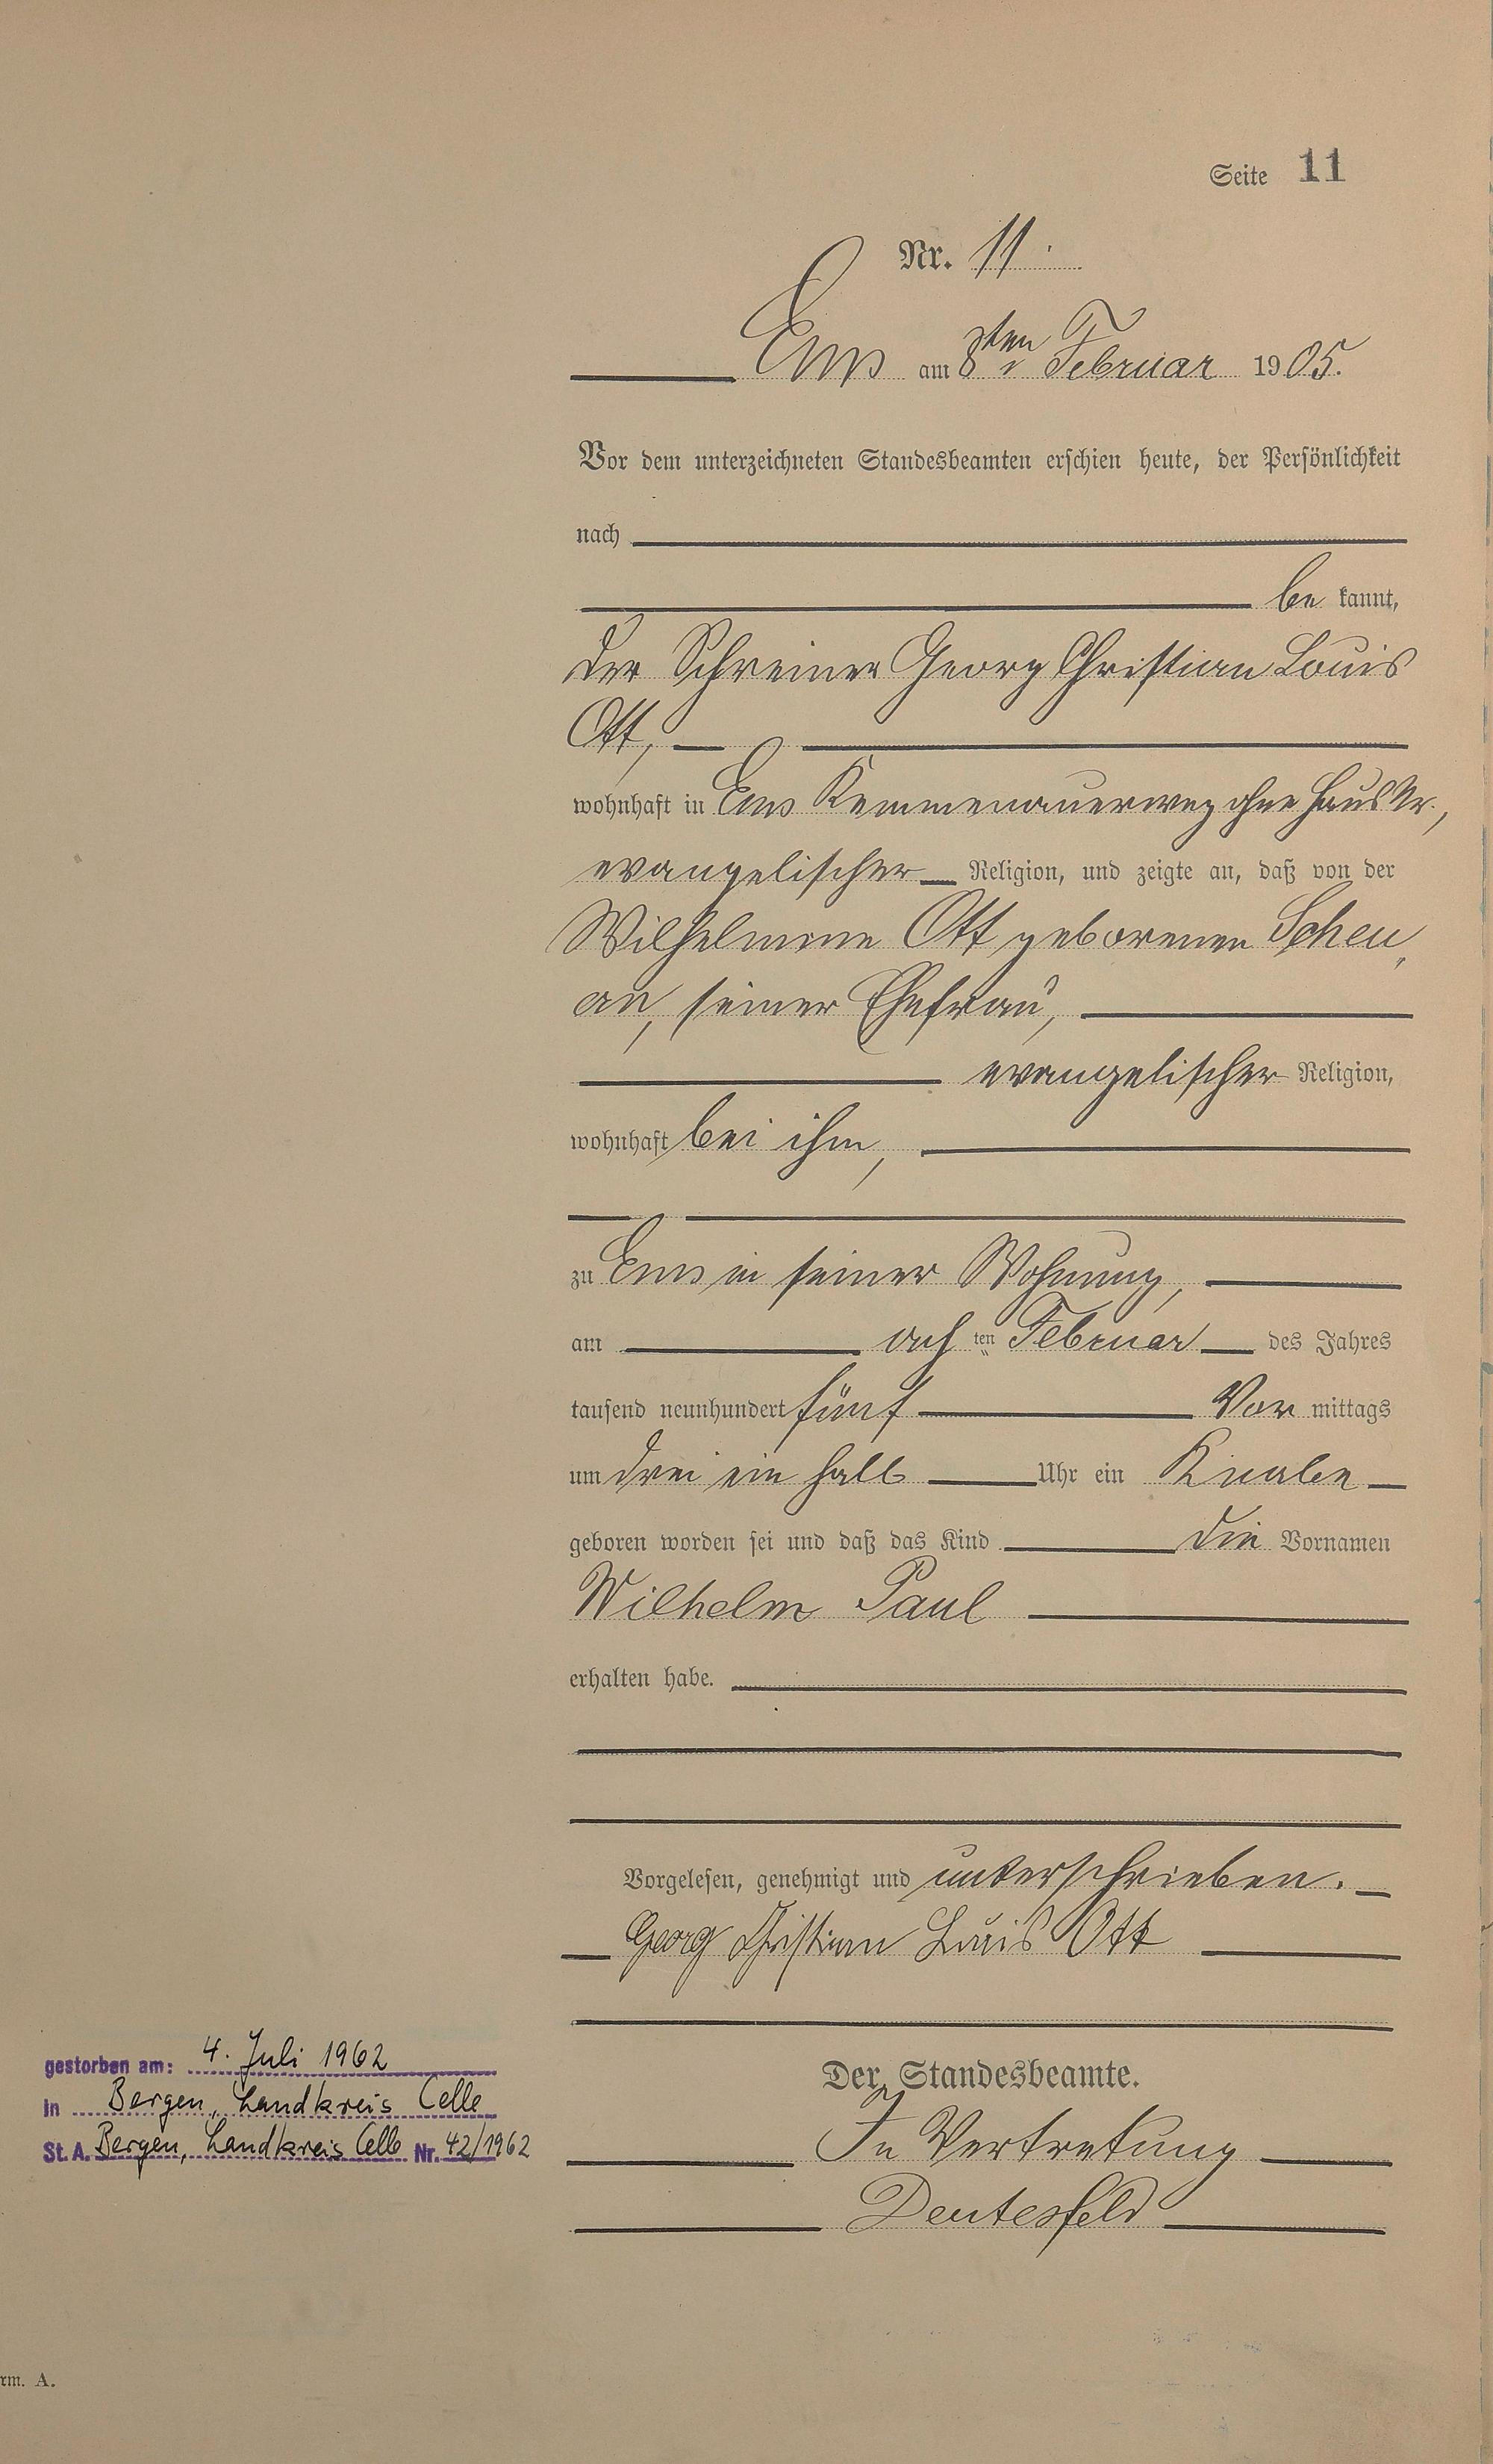 Seite 11
Nr. 11.
Ems am 8ten Februar 1905.
Vor dem unterzeichneten Standesbeamten erschien heute, der Persönlichkeit
nach
be kannt,
der Schreiner Georg Christian Louis
Ott,
wohnhaft in Ems Kemmenauerweg ohne Haus Nr.,
evangelischer Religion, und zeigte an, daß von der
Wilhelmine Ott geborenen Scheu„
an, seiner Ehefrau,
evangelischer Religion,
wohnhaft bei ihm,
zu Ems in seiner Wohnung,
am ach ten Februar des Jahres
tausend neunhundert fünf Vor mittags
um drei ein halb Uhr ein Knabe
geboren worden sei und daß das Kind die Vornamen
Wilhelm Paul
erhalten habe.
Vorgelesen, genehmigt und unterschrieben.
Georg Christian Louis Ott
Der Standesbeamte.
In Vertretung
Deutesfeld
gestorben am: 4. Juli 1962
in Bergen, Landkreis Celle
St. A. Bergen, Landkreis Celle Nr. 42/1962
rm. A.